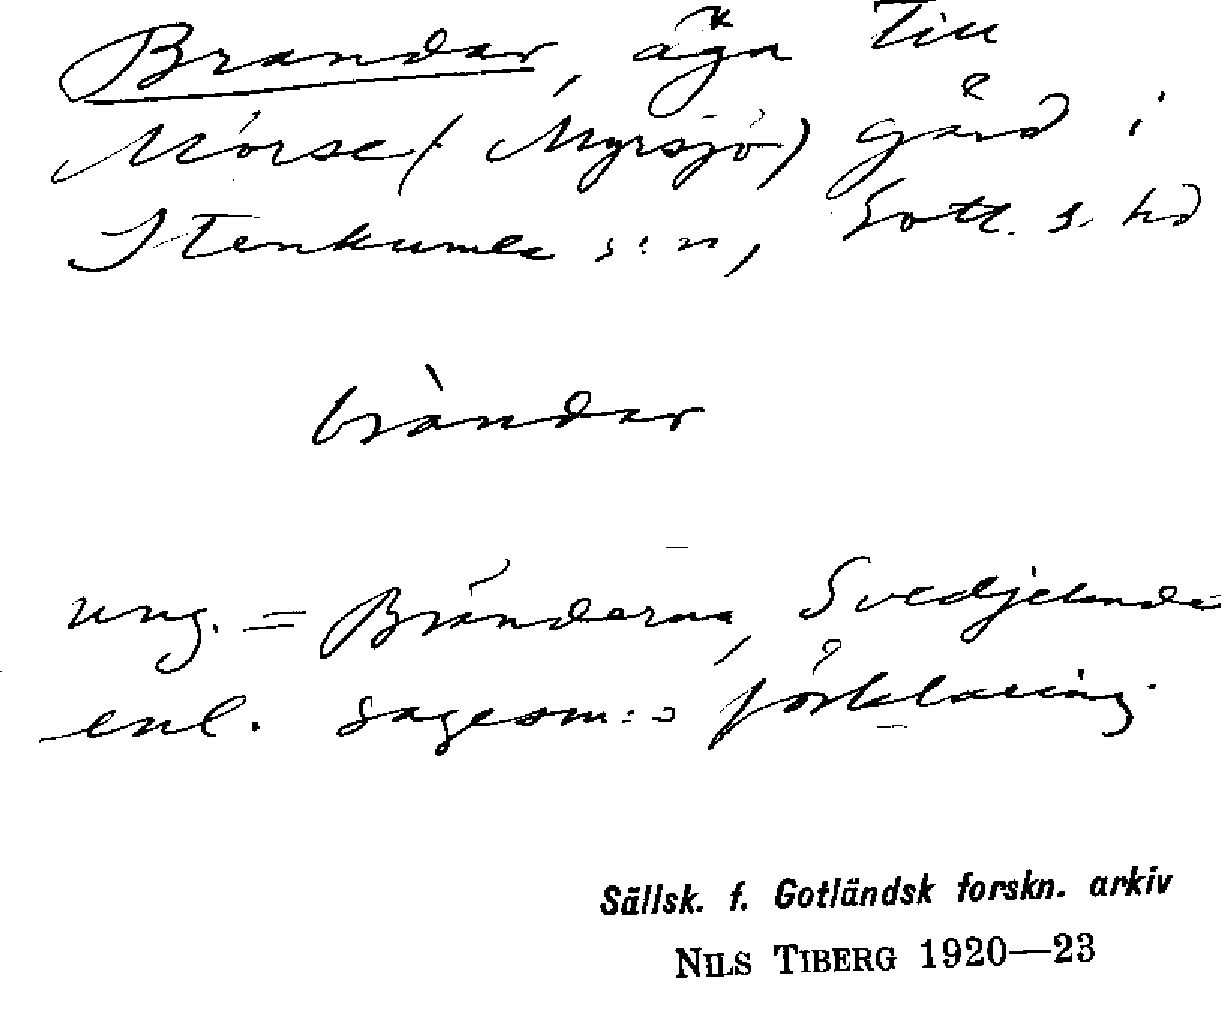 Brandar, äga till
Mörse (Myrsjö) gård i
Stenkumla s:n, Gotl. s. hd
bràndar
ung. = Bränderna, Svedjelanda
enl. sagesm:s förklaring.
Sällsk. f. Gotländsk forskn. arkiv
NILS TIBERG 1920—23